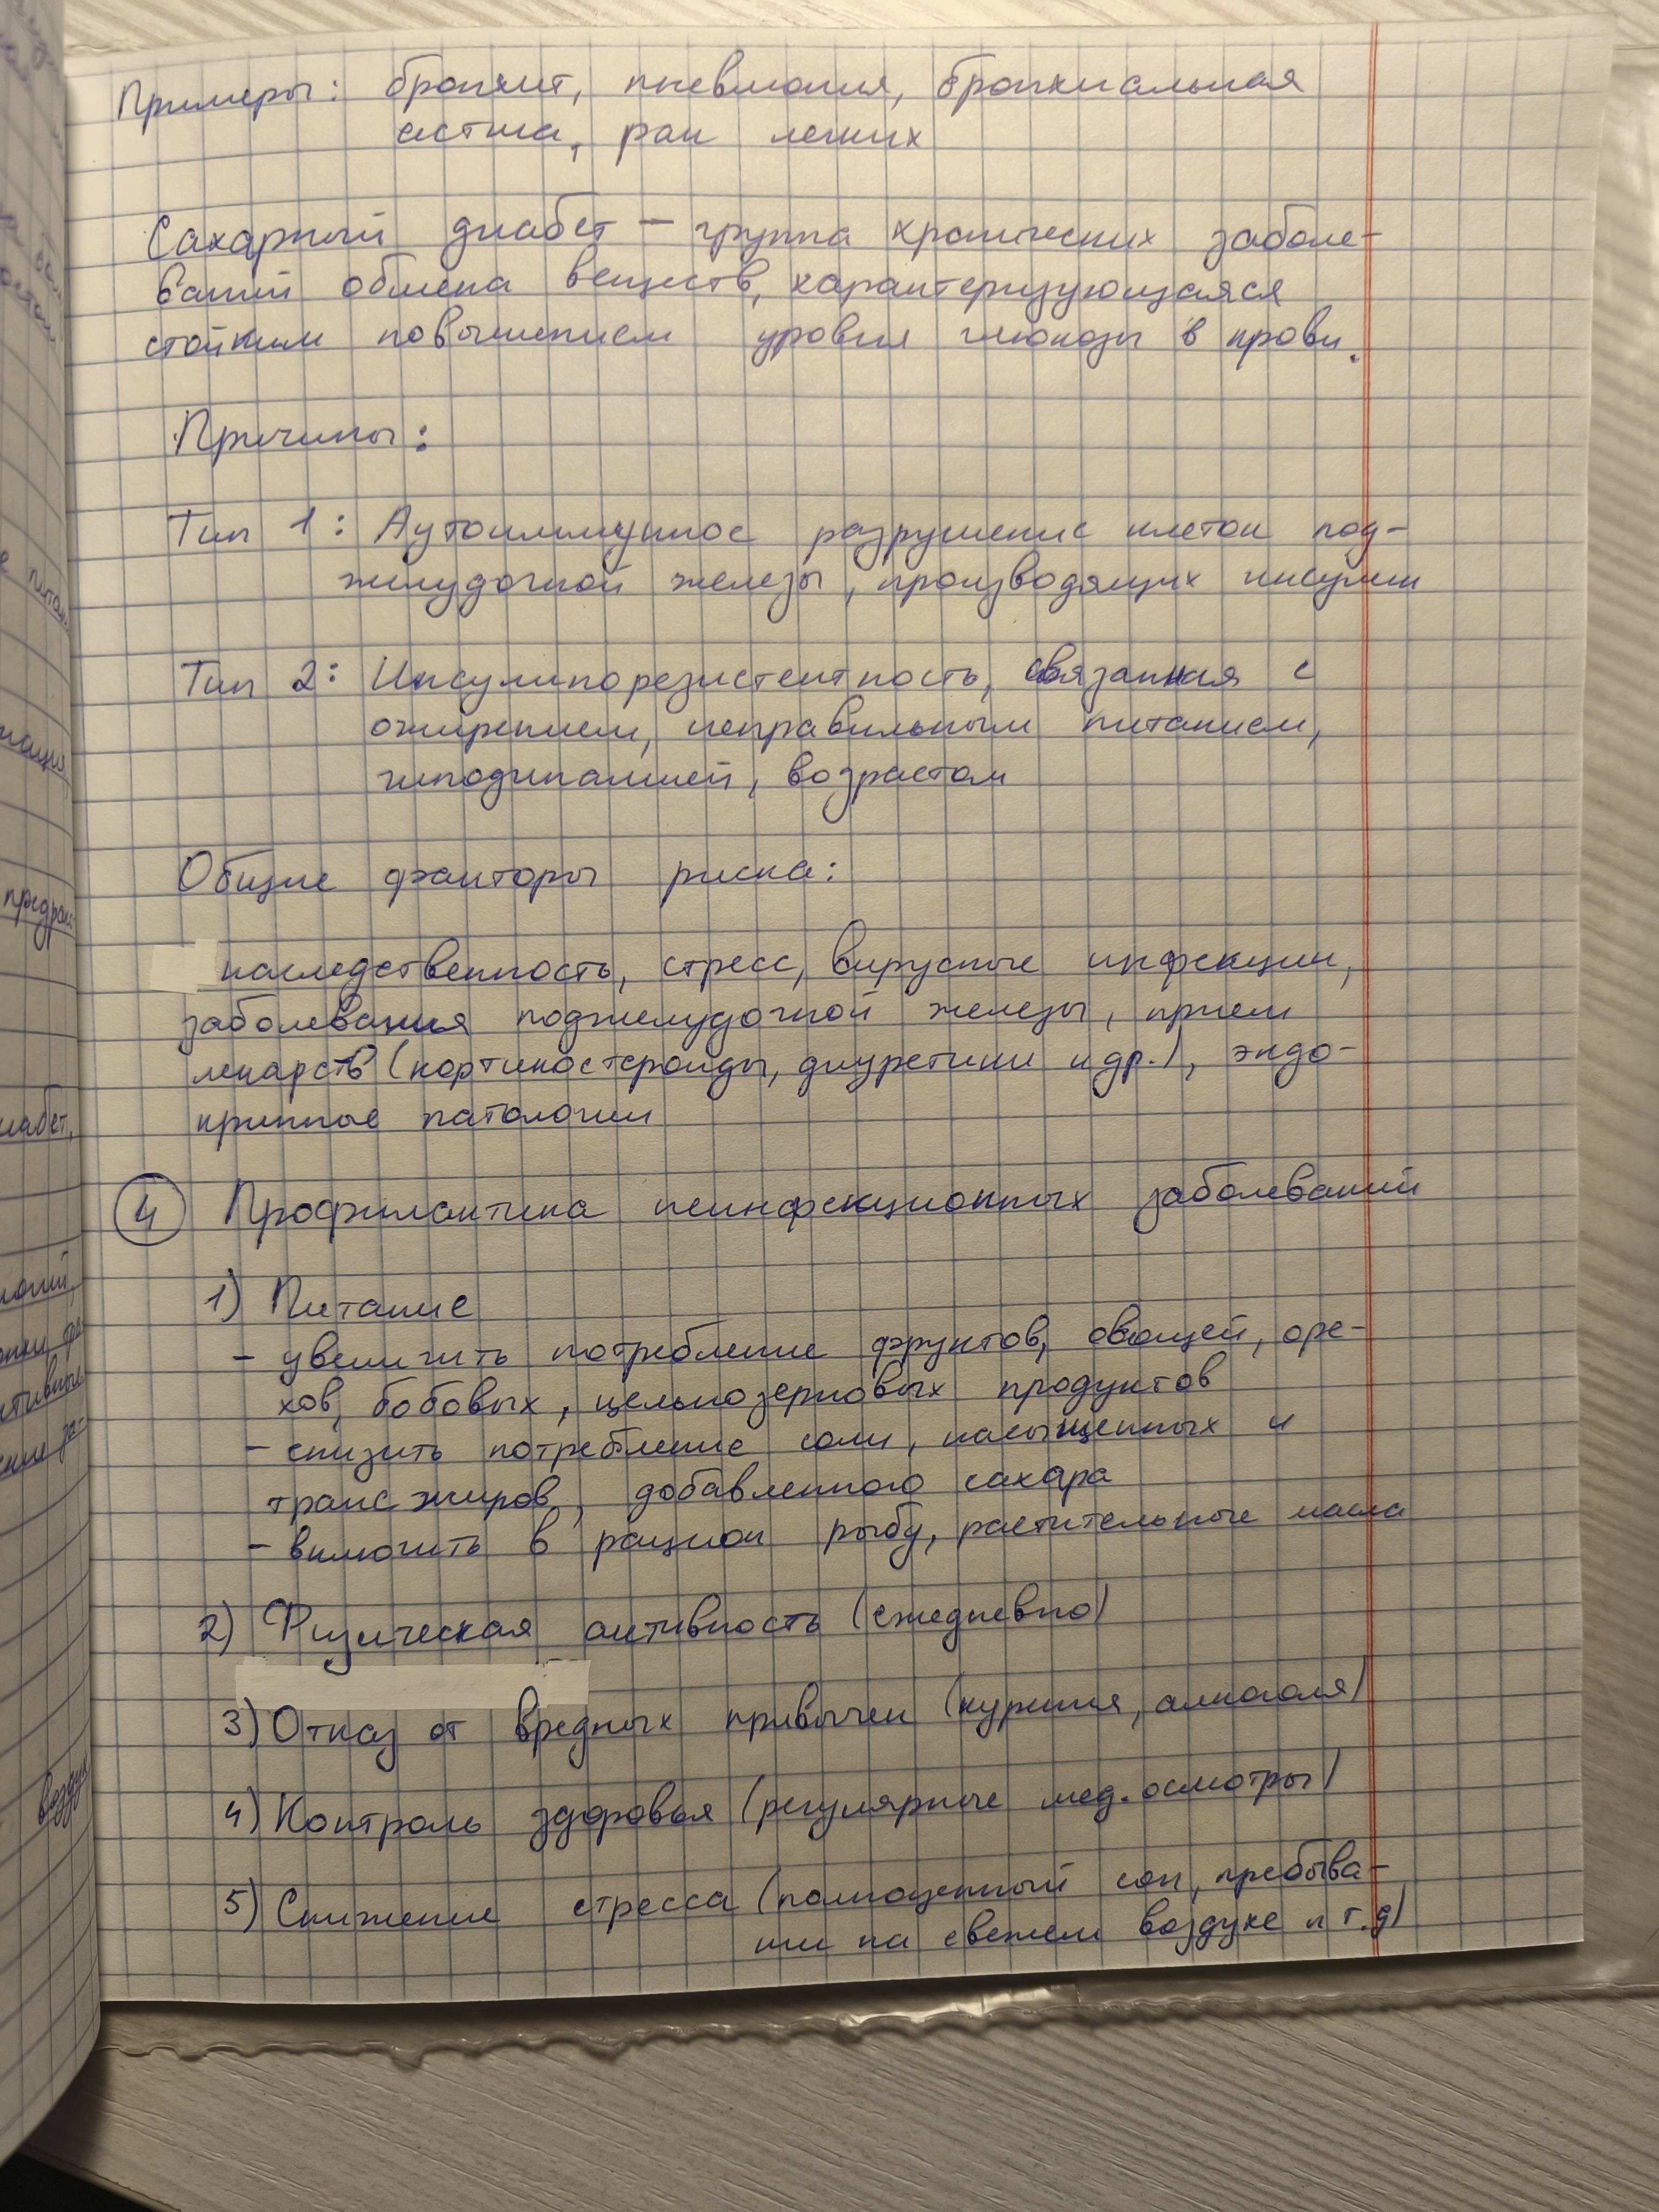 Примеры: бронхит, пневмония, бронхиальная
астма, рак легких
Сахарный диабет – группа хронических заболе-
ваний обмена веществ, характеризующаяся
стойким повышением уровня глюкозы в крови.
Причины:
Тип 1: Аутоиммунное разрушение клеток под-
желудочной железы, производящих инсулин
Тип 2: Инсулинорезистентность, связанная с
ожирением, неправильным питанием,
гиподинамией, возрастом
Общие факторы риска:
наследственность, стресс, вирусные инфекции,
заболевания поджелудочной железы, прием
лекарств (кортикостероиды, диуретики и др.), эндо-
кринные патологии
4 Профилактика неинфекционных заболеваний
1) Питание
- увеличить потребление фруктов, овощей, оре-
хов, бобовых, цельнозерновых продуктов
- снизить потребление соли, насыщенных и
транс жиров, добавленного сахара
- включить в рацион рыбу, растительные масла
2) Физическая активность (ежедневно)
3) Отказ от вредных привычек (курения, алкоголя)
4) Контроль здоровья (регулярные мед. осмотры)
5) Снижение стресса (полноценный сон, пребыва-
ние на свежем воздухе и т.д)